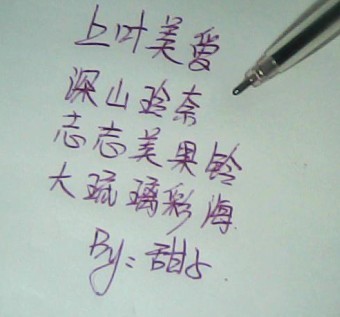 上叶美爱
深山玲奈
志志美果铃
大琉璃彩海
By：甜